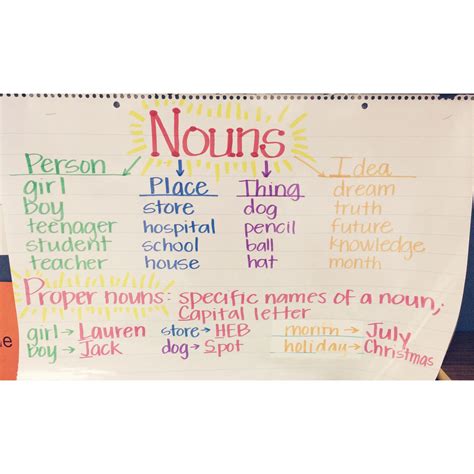 Nouns
Person Place Thing Idea
girl store dog dream
boy hospital pencil truth
teenager school ball future
student house hat knowledge
teacher month
Proper nouns: specific names of a noun;
Capital letter
girl → Lauren store → HEB month → July
boy → Jack dog → Spot holiday → Christmas